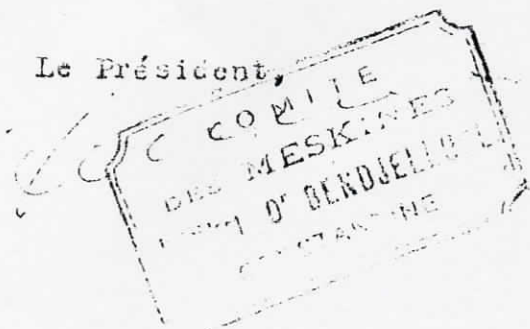 Le Président,
COMITE
DES MESKINES
Dr BENDJELLOUL
CONSTANTINE